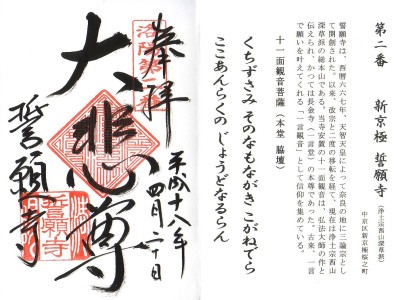 第二番　新京極　誓願寺（浄土宗西山深草派）
中京区新京極桜之町
誓願寺は、西暦六六七年、天智天皇によって奈良の地に三論宗とし
て開創された。以来、改宗と二度の移転を経て、現在は浄土宗西山
深草派の総本山である。当寺安置の十一面観音は、弘法大師の作と
伝えられ、かつては長金寺（一言堂）の本尊であった。古来、一言
で願いを叶えてくれる「一言観音」として信仰を集めている。
十一面観音菩薩（本堂　脇壇）
くちずさみ そのなもながき こがねでら
ここあんらくの じょうどなるらん
奉拝
平成十八年
四月二十日
洛陽第二番
大悲尊
誓願寺
誓願寺